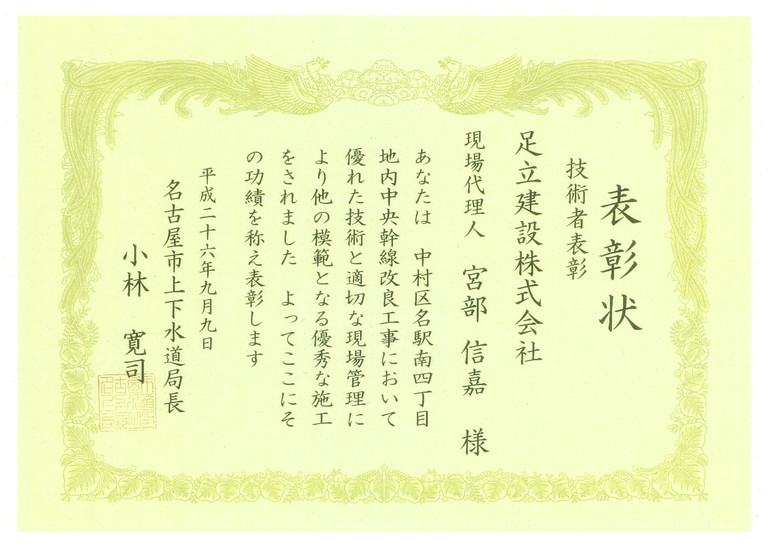 表彰状
技術者表彰
足立建設株式会社
現場代理人 宮部 信嘉 様
あなたは 中村区名駅南四丁目
地内中央幹線改良工事において
優れた技術と適切な現場管理に
より他の模範となる優秀な施工
をされました よってここにそ
の功績を称え表彰します
平成二十六年九月九日
名古屋市上下水道局長
小林 寛司